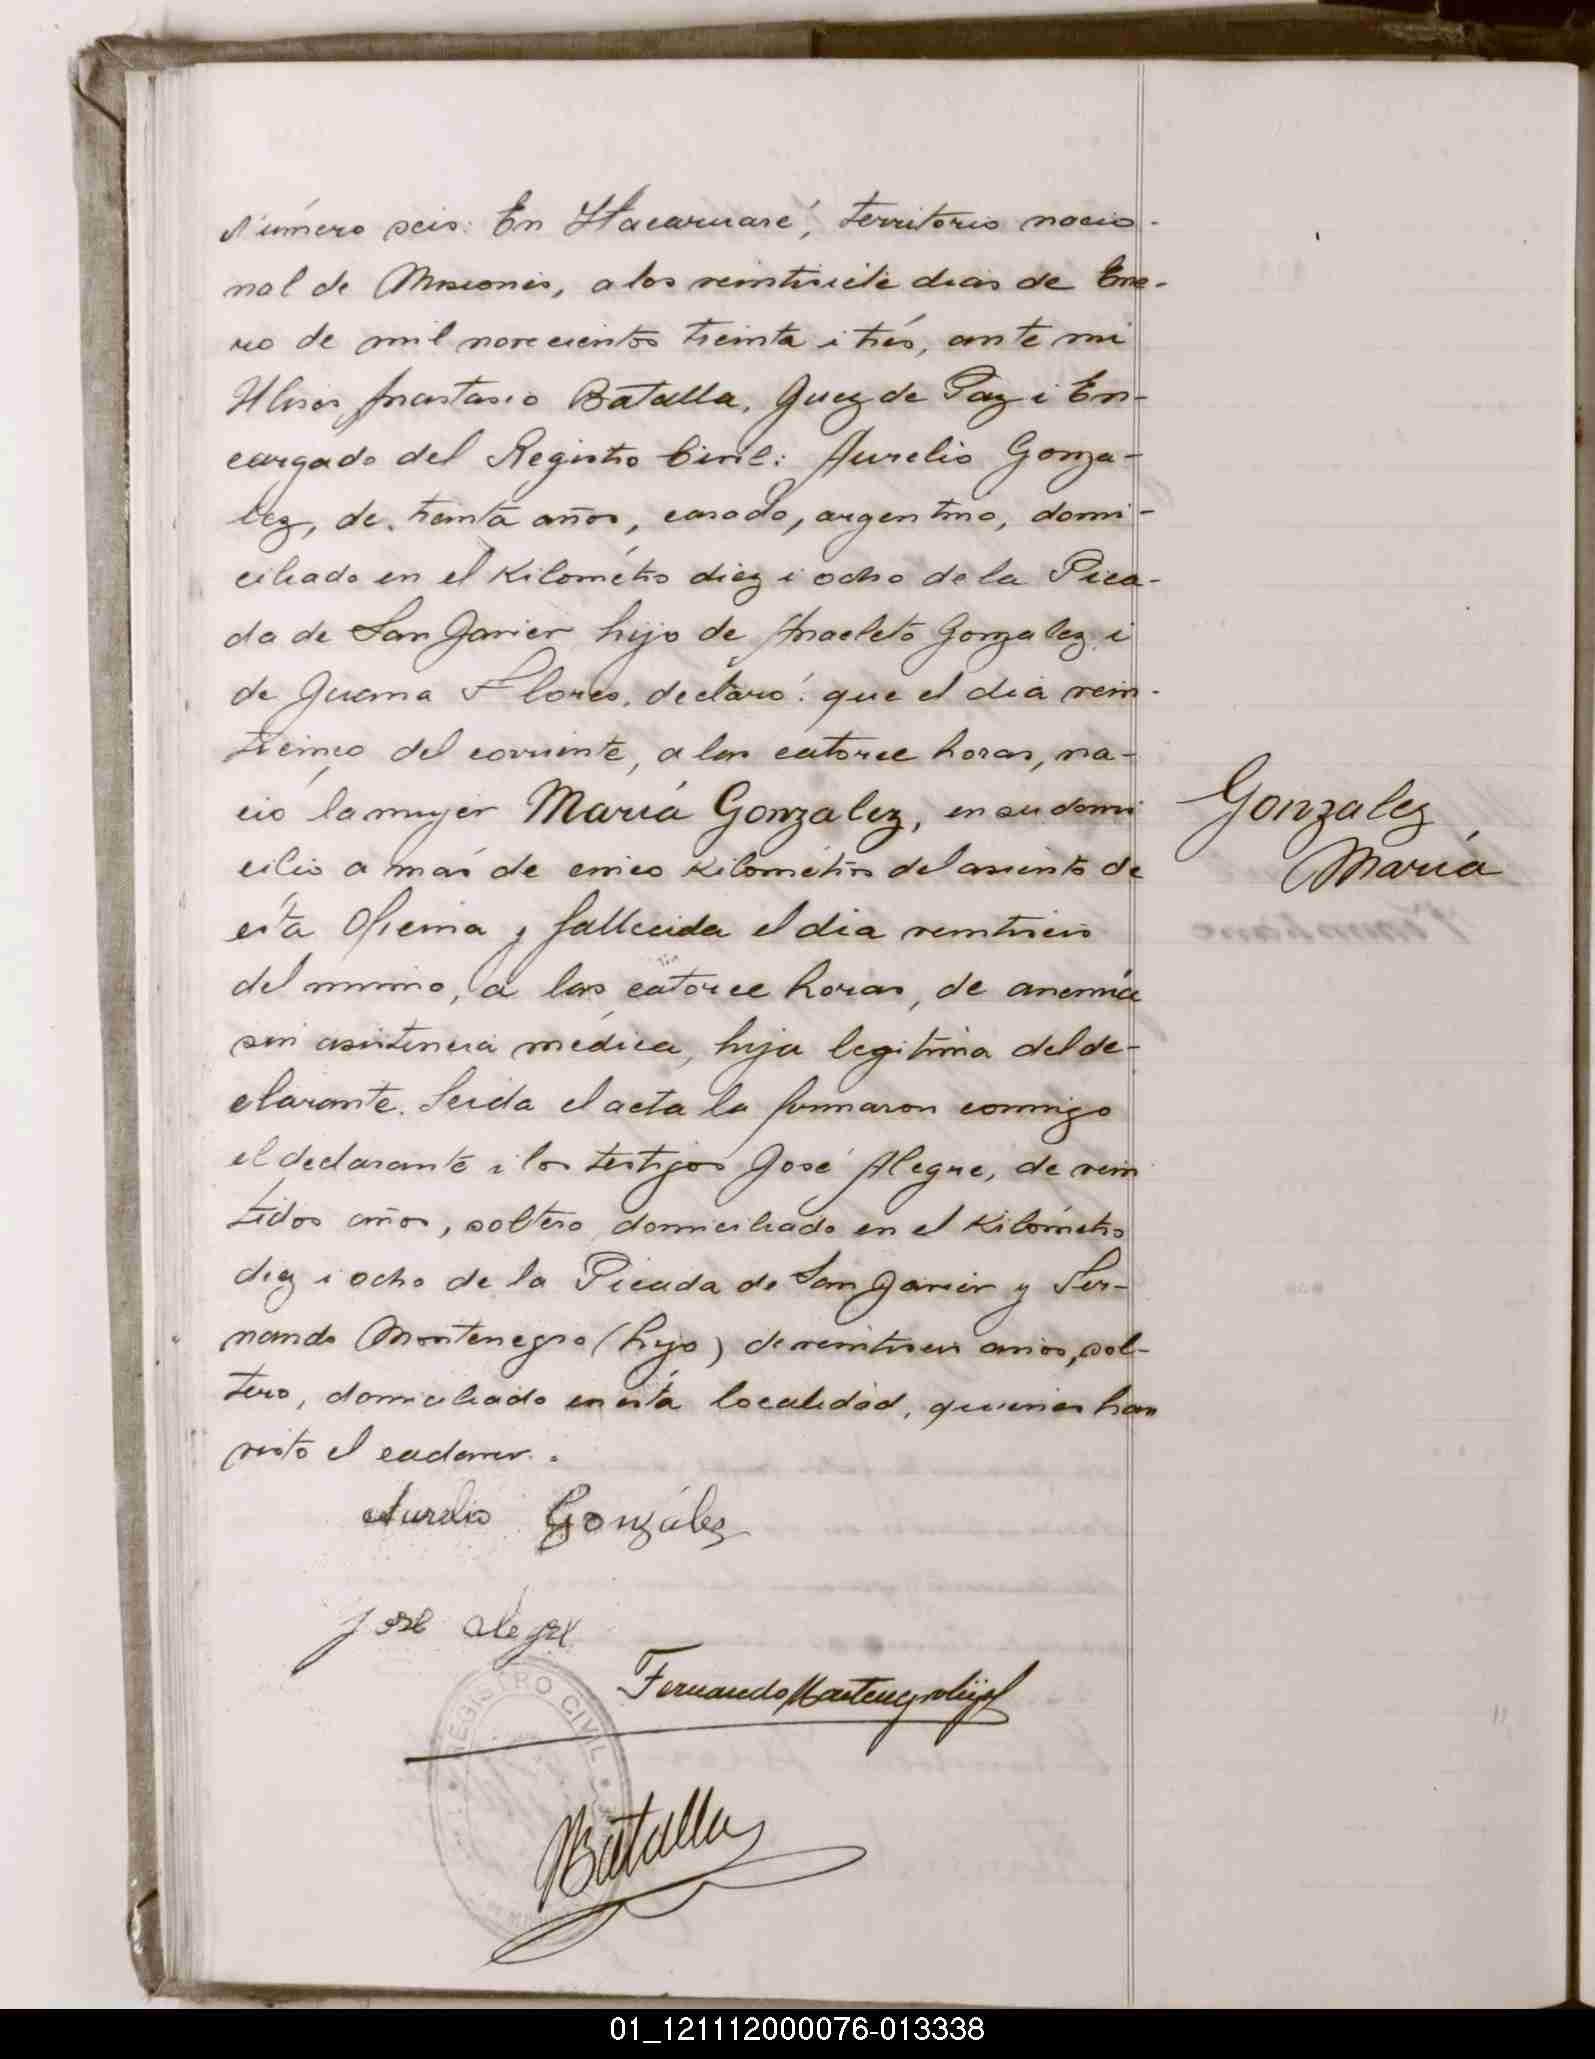 Número seis: En Itacaruaré, territorio nacio-
nal de Misiones, a los veintisiete dias de Ene-
ro de mil novecientos treinta i trés, ante mi
Ulises Anastasio Batalla, Juez de Paz i En-
cargado del Registro Civil: Aurelio Gonza-
lez, de treinta años, casado, argentino, domi-
ciliado en el Kilométro diez i ocho de la Pica-
da de San Javier hijo de Anacleto Gonzalez i
de Juana Flores, declaró: que el dia vein-
ticinco del corriente, a las catorce horas, na-
ció la mujer María Gonzalez, en su domi
cilio a más de cinco Kilométros del asiento de
Gonzalez
María
esta Oficina y fallecida el dia veintiseis
del mismo, a las catorce horas, de anemia
sin asistencia médica, hija legitima del de-
clarante. Leida el acta la firmaron conmigo
el declarante i los testigos José Alegre, de vein
tidos años, soltero, domiciliado en el Kilómetro
diez i ocho de la Picada de San Javier y Fer-
nando Montenegro (hijo) de veintiseis años, sol-
tero, domiciliado en esta localidad, quienes han
visto el cadaver.
Aurelio González
José Alegre
Fernando Montenegro hijo
REGISTRO CIVIL
Batalla
01_121112000076-013338